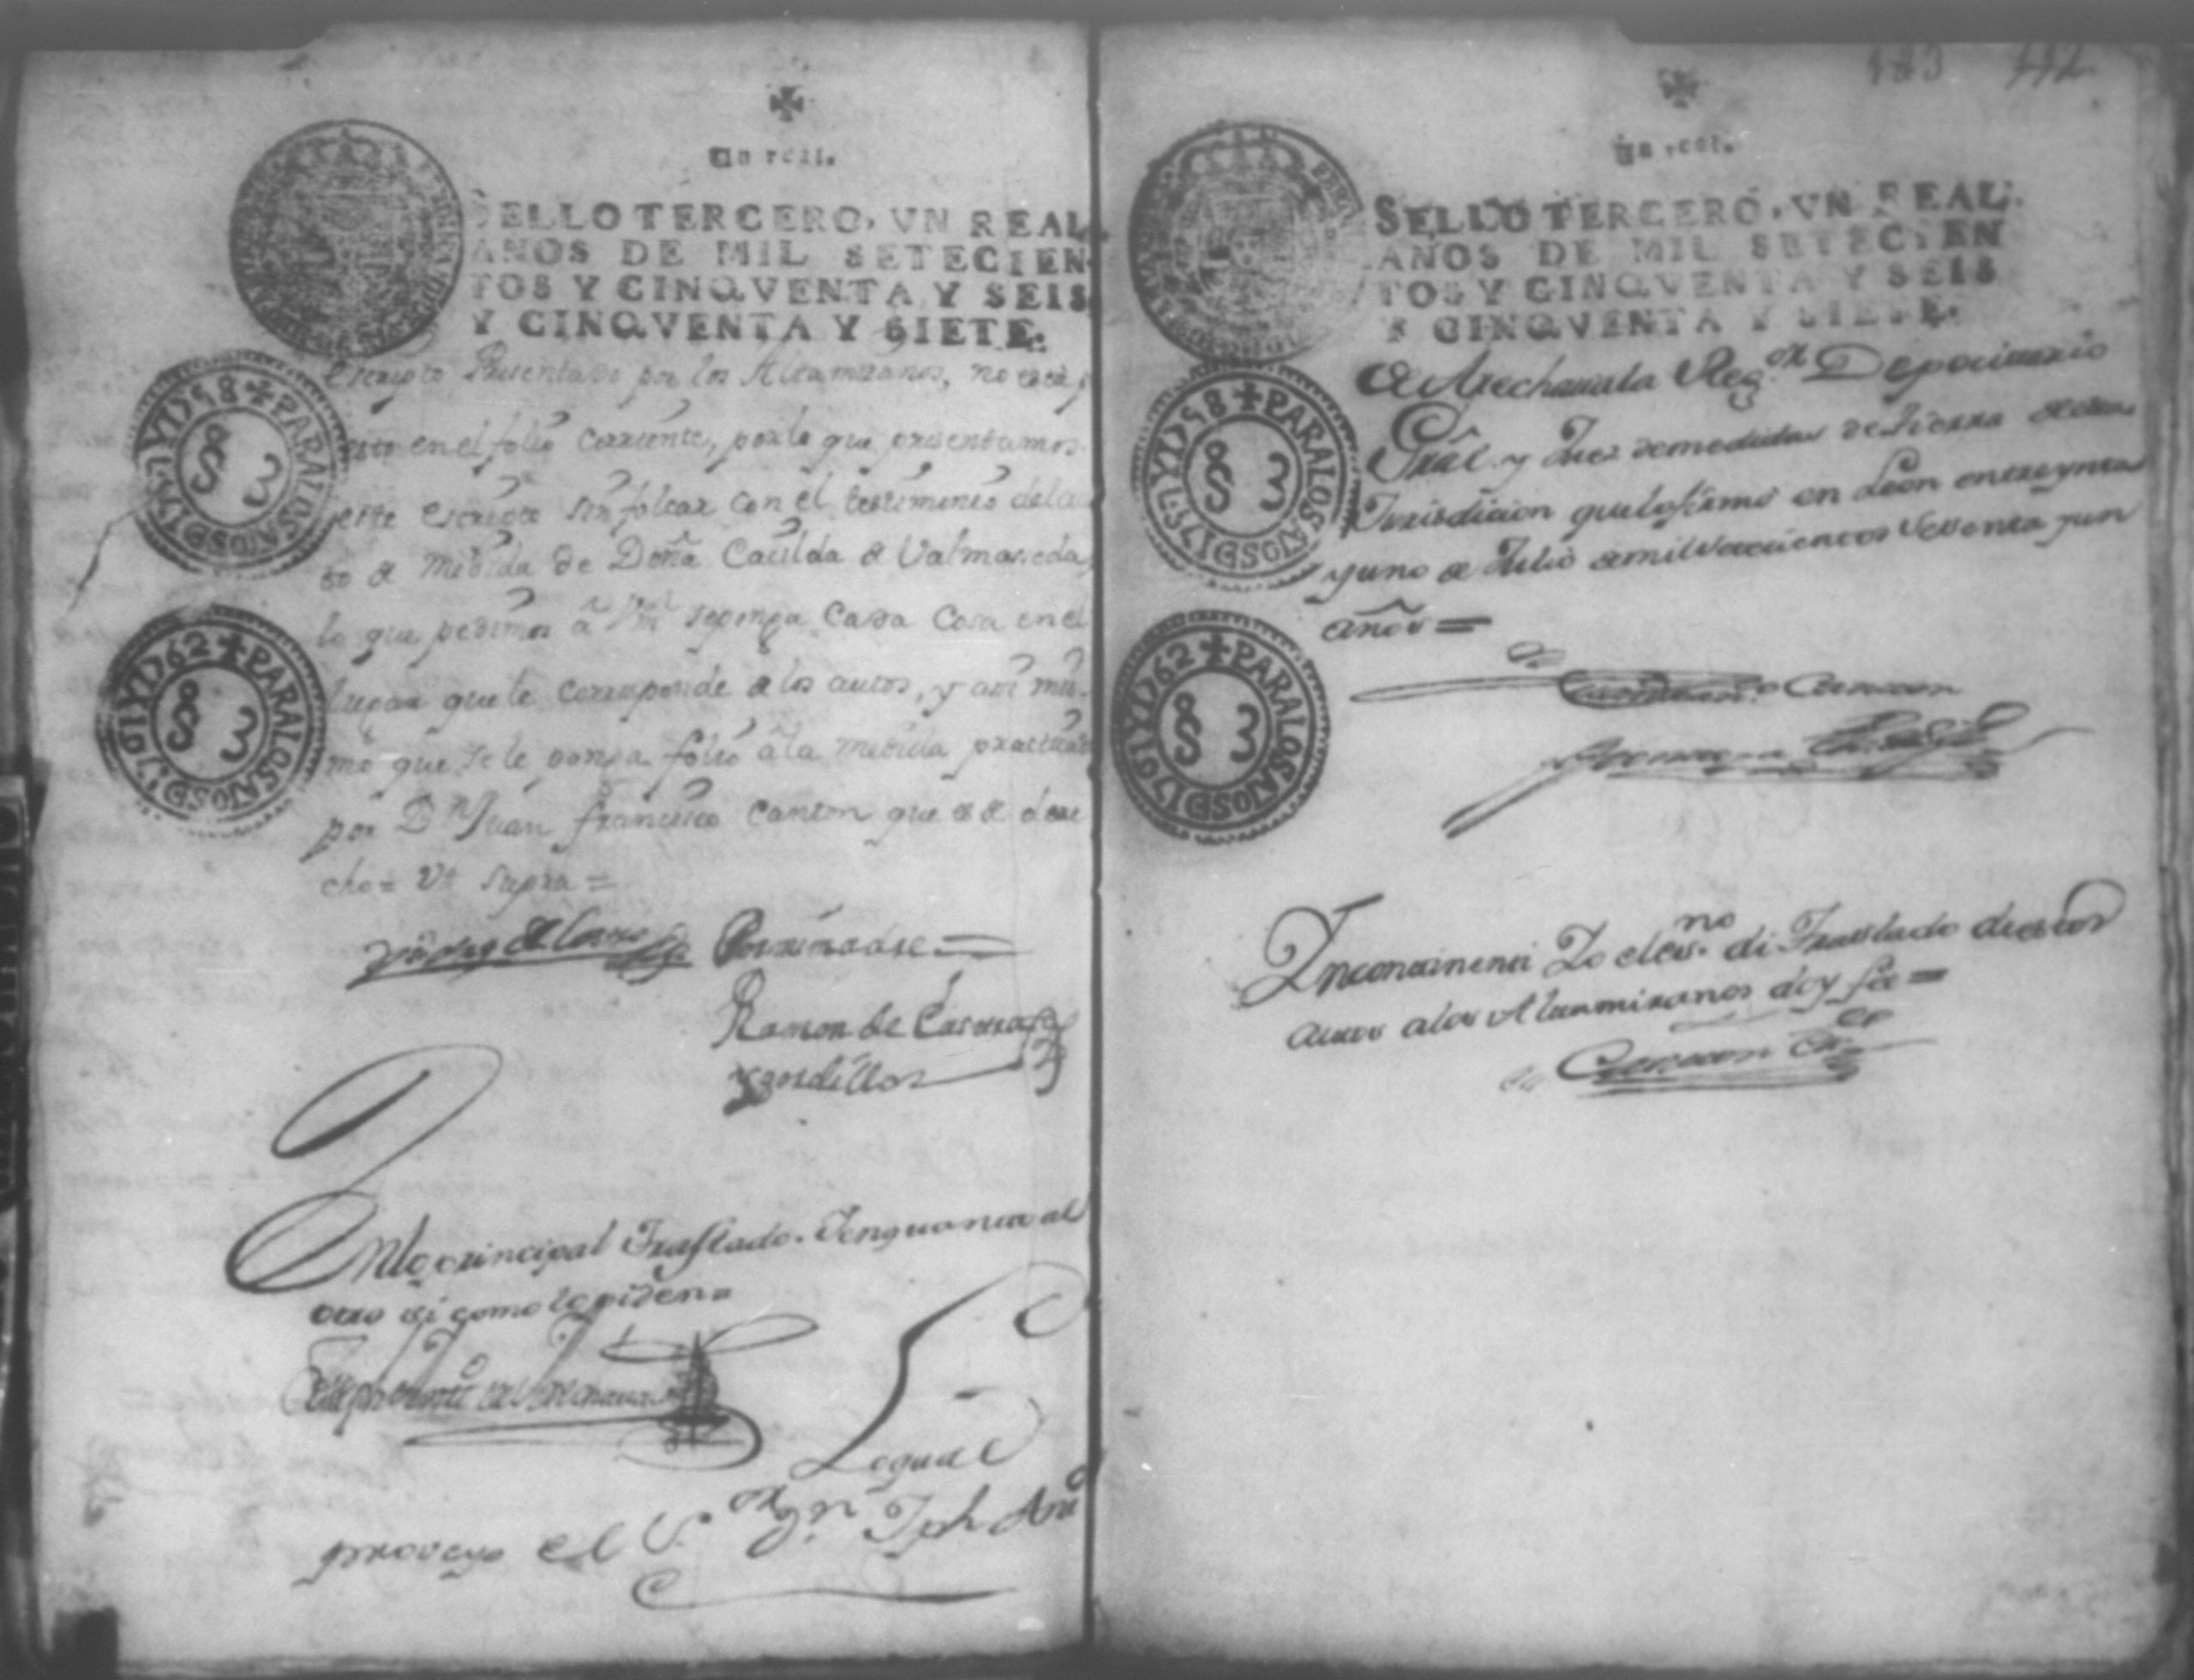 Un real.
SELLO TERCERO, VN REAL
AÑOS DE MIL SETECIEN
TOS Y CINQVENTA Y SEIS
Y CINQVENTA Y SIETE.
PARALOSAÑOS D 1757 Y 1758
§ 3
PARALOSAÑOS D 1761 Y 1762
§ 3
Escripto Presentado por los Altamiranos, no está
en el folio corriente, por lo que presentamos
este escripto sin foliar con el testimonio
de medida de Doña Cacilda de Valmaseda,
lo que pedimos â Vm se ponga cada cosa en el
lugar que le corresponde de los autos, y asi mis-
mo que se le ponga folio â la medida
por Dn Juan Francisco Canton que es de dere
cho = Vt supra =
Ramon de
gordillo
En lo principal Traslado. Tenguance al
otro si como lo piden =
Loqual
proveyo el Sor Dn Jph Anto
183 112
Un real.
SELLO TERCERO, VN REAL.
AÑOS DE MIL SETECIEN
TOS Y CINQVENTA Y SEIS
Y CINQVENTA Y SIETE.
PARALOSAÑOS D 1757 Y 1758
§ 3
PARALOSAÑOS D 1761 Y 1762
§ 3
de Arechavala Regor Depocitario
Gral y Juez de medidas de tierra
Jurisdicion que lo firmó en Leon en treynta
y uno de Julio de mil setecientos sesenta y un
años =
Incontinenti Yo el esno di Traslado de estos
autos a los Altamiranos doy fee =